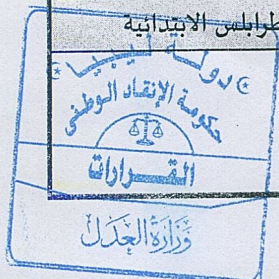 طرابلس الابتدائية
دولة ليبيا
حكومة الإنقاذ الوطني
القرارات
وزارة العدل